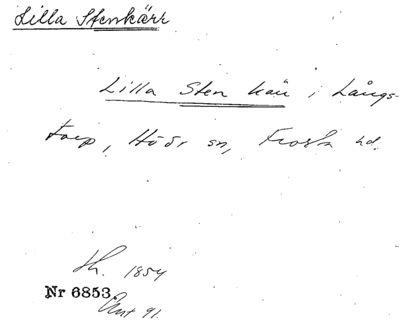 Lilla Stenkärr
Lilla Sten kärr i Långs-
torp, Höörs sn, Frosta hd.
Sk. 1854
Nr 6853.
Ant 91.